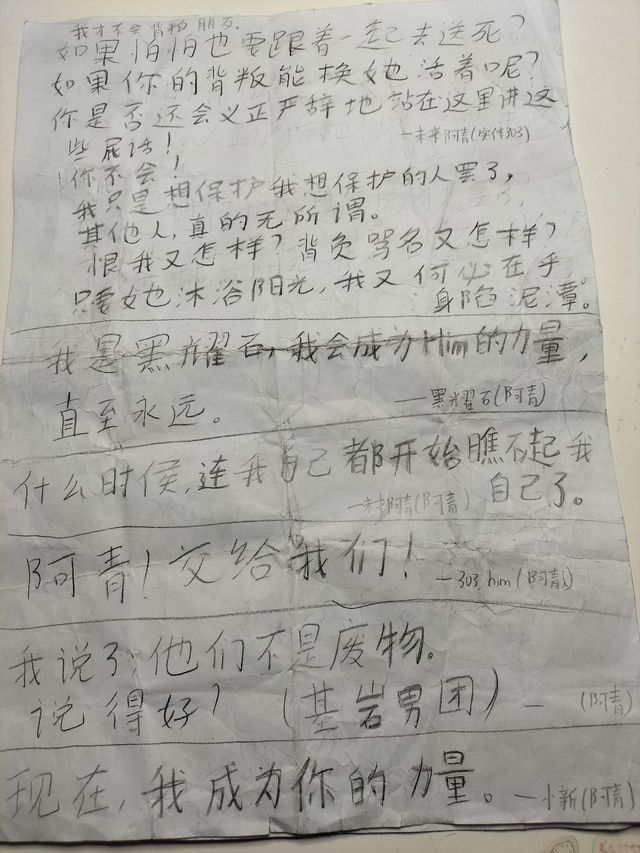 我才不会背叛朋友.
如果怕怕也要跟着一起去送死？
如果你的背叛能换她活着呢？
你是否还会义正严辞地站在这里讲这
些屁话！
一未来阿青(实体303)
你不会！
我只是想保护我想保护的人罢了，
其他人，真的无所谓。
恨我又怎样？背负骂名又怎样？
只要她沐浴阳光，我又何必在乎
身陷泥潭。
我是黑耀石，我会成为Him的力量，
直至永远。
一黑耀石(阿青)
什么时侯，连我自己都开始瞧不起我
自己了。
一未来阿青(阿青)
阿青！交给我们！
—303,him(阿青)
我说了，他们不是废物。
说得好？（基岩男团）— (阿青)
现在，我成为你的力量。—小新(阿青)